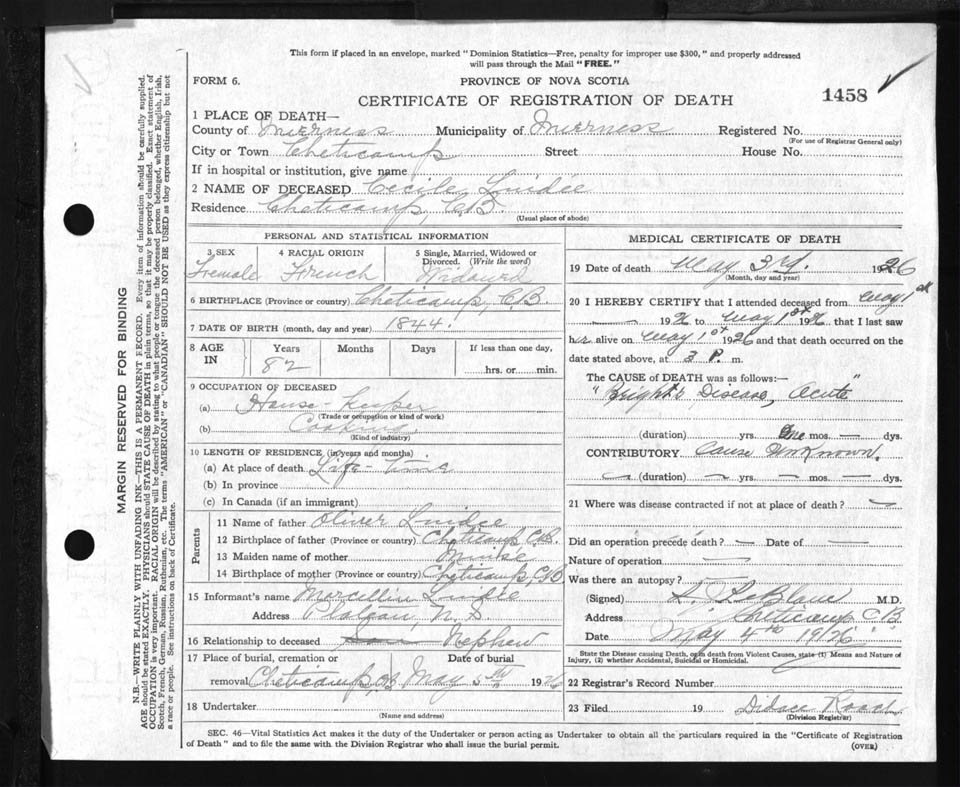 This form if placed in an envelope, marked "Dominion Statistics—Free, penalty for improper use $300," and properly addressed
will pass through the Mail "FREE."
FORM 6.
PROVINCE OF NOVA SCOTIA
CERTIFICATE OF REGISTRATION OF DEATH
1458
1 PLACE OF DEATH—
County of Inverness Municipality of Inverness Registered No.
(For use of Registrar General only)
City or Town Cheticamp Street House No.
If in hospital or institution, give name
2 NAME OF DECEASED Cecile
Residence Cheticamp, C.B.
(Usual place of abode)
PERSONAL AND STATISTICAL INFORMATION
3 SEX
Female
4 RACIAL ORIGIN
French
5 Single, Married, Widowed or
Divorced. (Write the word)
6 BIRTHPLACE (Province or country) Cheticamp, C.B.
7 DATE OF BIRTH (month, day and year) 1844.
8 AGE IN
Years Months Days If less than one day,
82 hrs. or min.
9 OCCUPATION OF DECEASED
(a) House-Keeper
(Trade or occupation or kind of work)
(b) Cooking
(Kind of industry)
10 LENGTH OF RESIDENCE (in years and months)
(a) At place of death Life-Time
(b) In province
(c) In Canada (if an immigrant)
Parents
11 Name of father Oliver
12 Birthplace of father (Province or country) Cheticamp C.B.
13 Maiden name of mother
14 Birthplace of mother (Province or country) Cheticamp, C.B.
15 Informant's name Marcellin
Address N.S
16 Relationship to deceased Son Nephew
17 Place of burial, cremation or Date of burial
removal Cheticamp, C.B. May 5th 1926
18 Undertaker
(Name and address)
MEDICAL CERTIFICATE OF DEATH
19 Date of death May 3rd. 1926
(Month, day and year)
20 I HEREBY CERTIFY that I attended deceased from May 1st
1926 to May 1st 1926 that I last saw
her alive on May 1st 1926 and that death occurred on the
date stated above, at 3 P. m.
The CAUSE OF DEATH was as follows:—
"Bright's Disease, Acute"
(duration) yrs. One mos. — dys.
CONTRIBUTORY Cause Unknown.
(duration) yrs. mos. dys.
21 Where was disease contracted if not at place of death?
Did an operation precede death? — Date of —
Nature of operation —
Was there an autopsy? —
(Signed) LeBlanc M.D.
Address Cheticamp C.B.
Date May 4th 1926
State the Disease causing Death, or in death from Violent Causes, state (1) Means and Nature of
Injury, (2) whether Accidental, Suicidal or Homicidal.
22 Registrar's Record Number
23 Filed 19 Didace Roach
(Division Registrar)
SEC. 46—Vital Statistics Act makes it the duty of the Undertaker or person acting as Undertaker to obtain all the particulars required in the "Certificate of Registration
of Death" and to file the same with the Division Registrar who shall issue the burial permit.
(OVER)
MARGIN RESERVED FOR BINDING
N.B.—WRITE PLAINLY WITH UNFADING INK—THIS IS A PERMANENT RECORD. Every item of information should be carefully supplied.
AGE should be stated EXACTLY. PHYSICIANS should STATE CAUSE OF DEATH in plain terms, so that it may be properly classified. Exact statement of
OCCUPATION is very important. RACIAL ORIGIN will be described by stating to what people or tongue the deceased person belonged, whether English, Irish,
Scotch, French, German, Russian, Ruthenian, etc. The terms "AMERICAN" or "CANADIAN" SHOULD NOT BE USED as they express citizenship but not
a race or people. See instructions on back of Certificate.